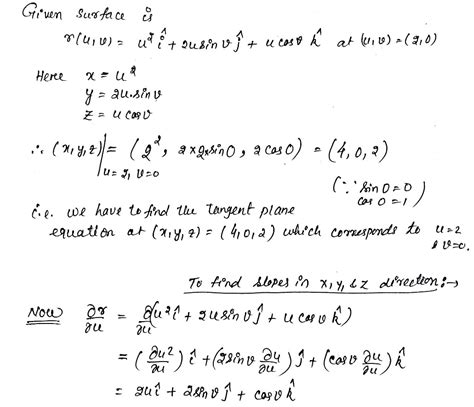 Given surface is
r(u,v) = u² î + 2u sin v ĵ + u cos v k̂ at (u,v) = (2,0)
Here x = u²
y = 2u.sin v
z = u cos v
∴ (x,y,z)|u=2, v=0 = (2², 2×2×sin 0, 2 cos 0) = (4,0,2)
(∵ sin 0 = 0
cos 0 = 1)
i.e. we have to find the tangent plane
equation at (x,y,z) = (4,0,2) which corresponds to u=2
& v=0.
To find slopes in x, y, & z direction:→
Now ∂r/∂u = ∂/∂u (u² î + 2u sin v ĵ + u cos v k̂)
= (∂u²/∂u) î + (2 sin v ∂u/∂u) ĵ + (cos v ∂u/∂u) k̂
= 2u î + 2 sin v ĵ + cos v k̂